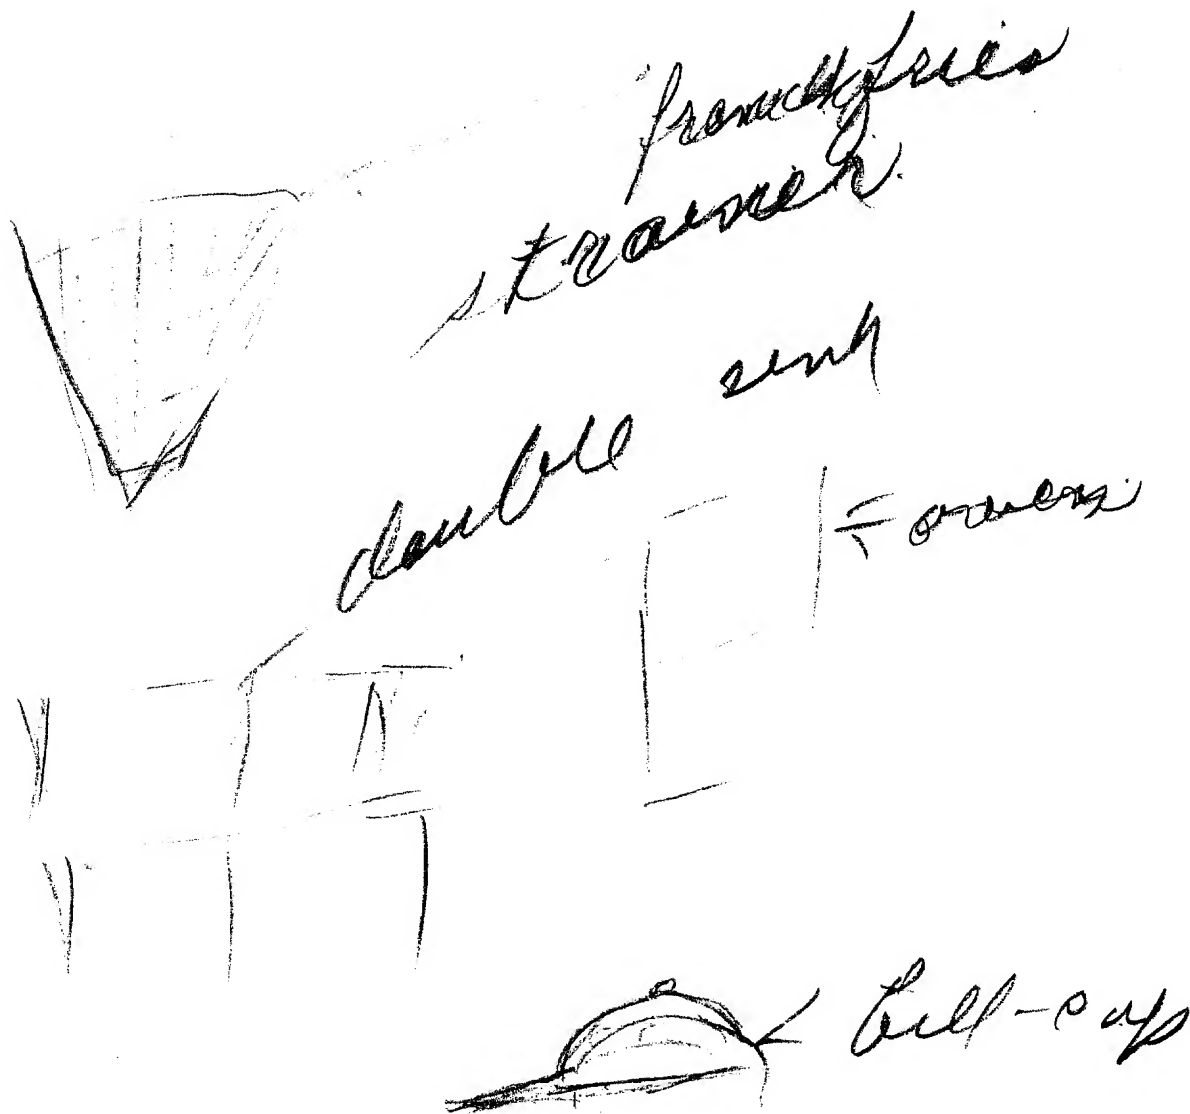 french fries
strainer.
double sink
oven
Bill-cap